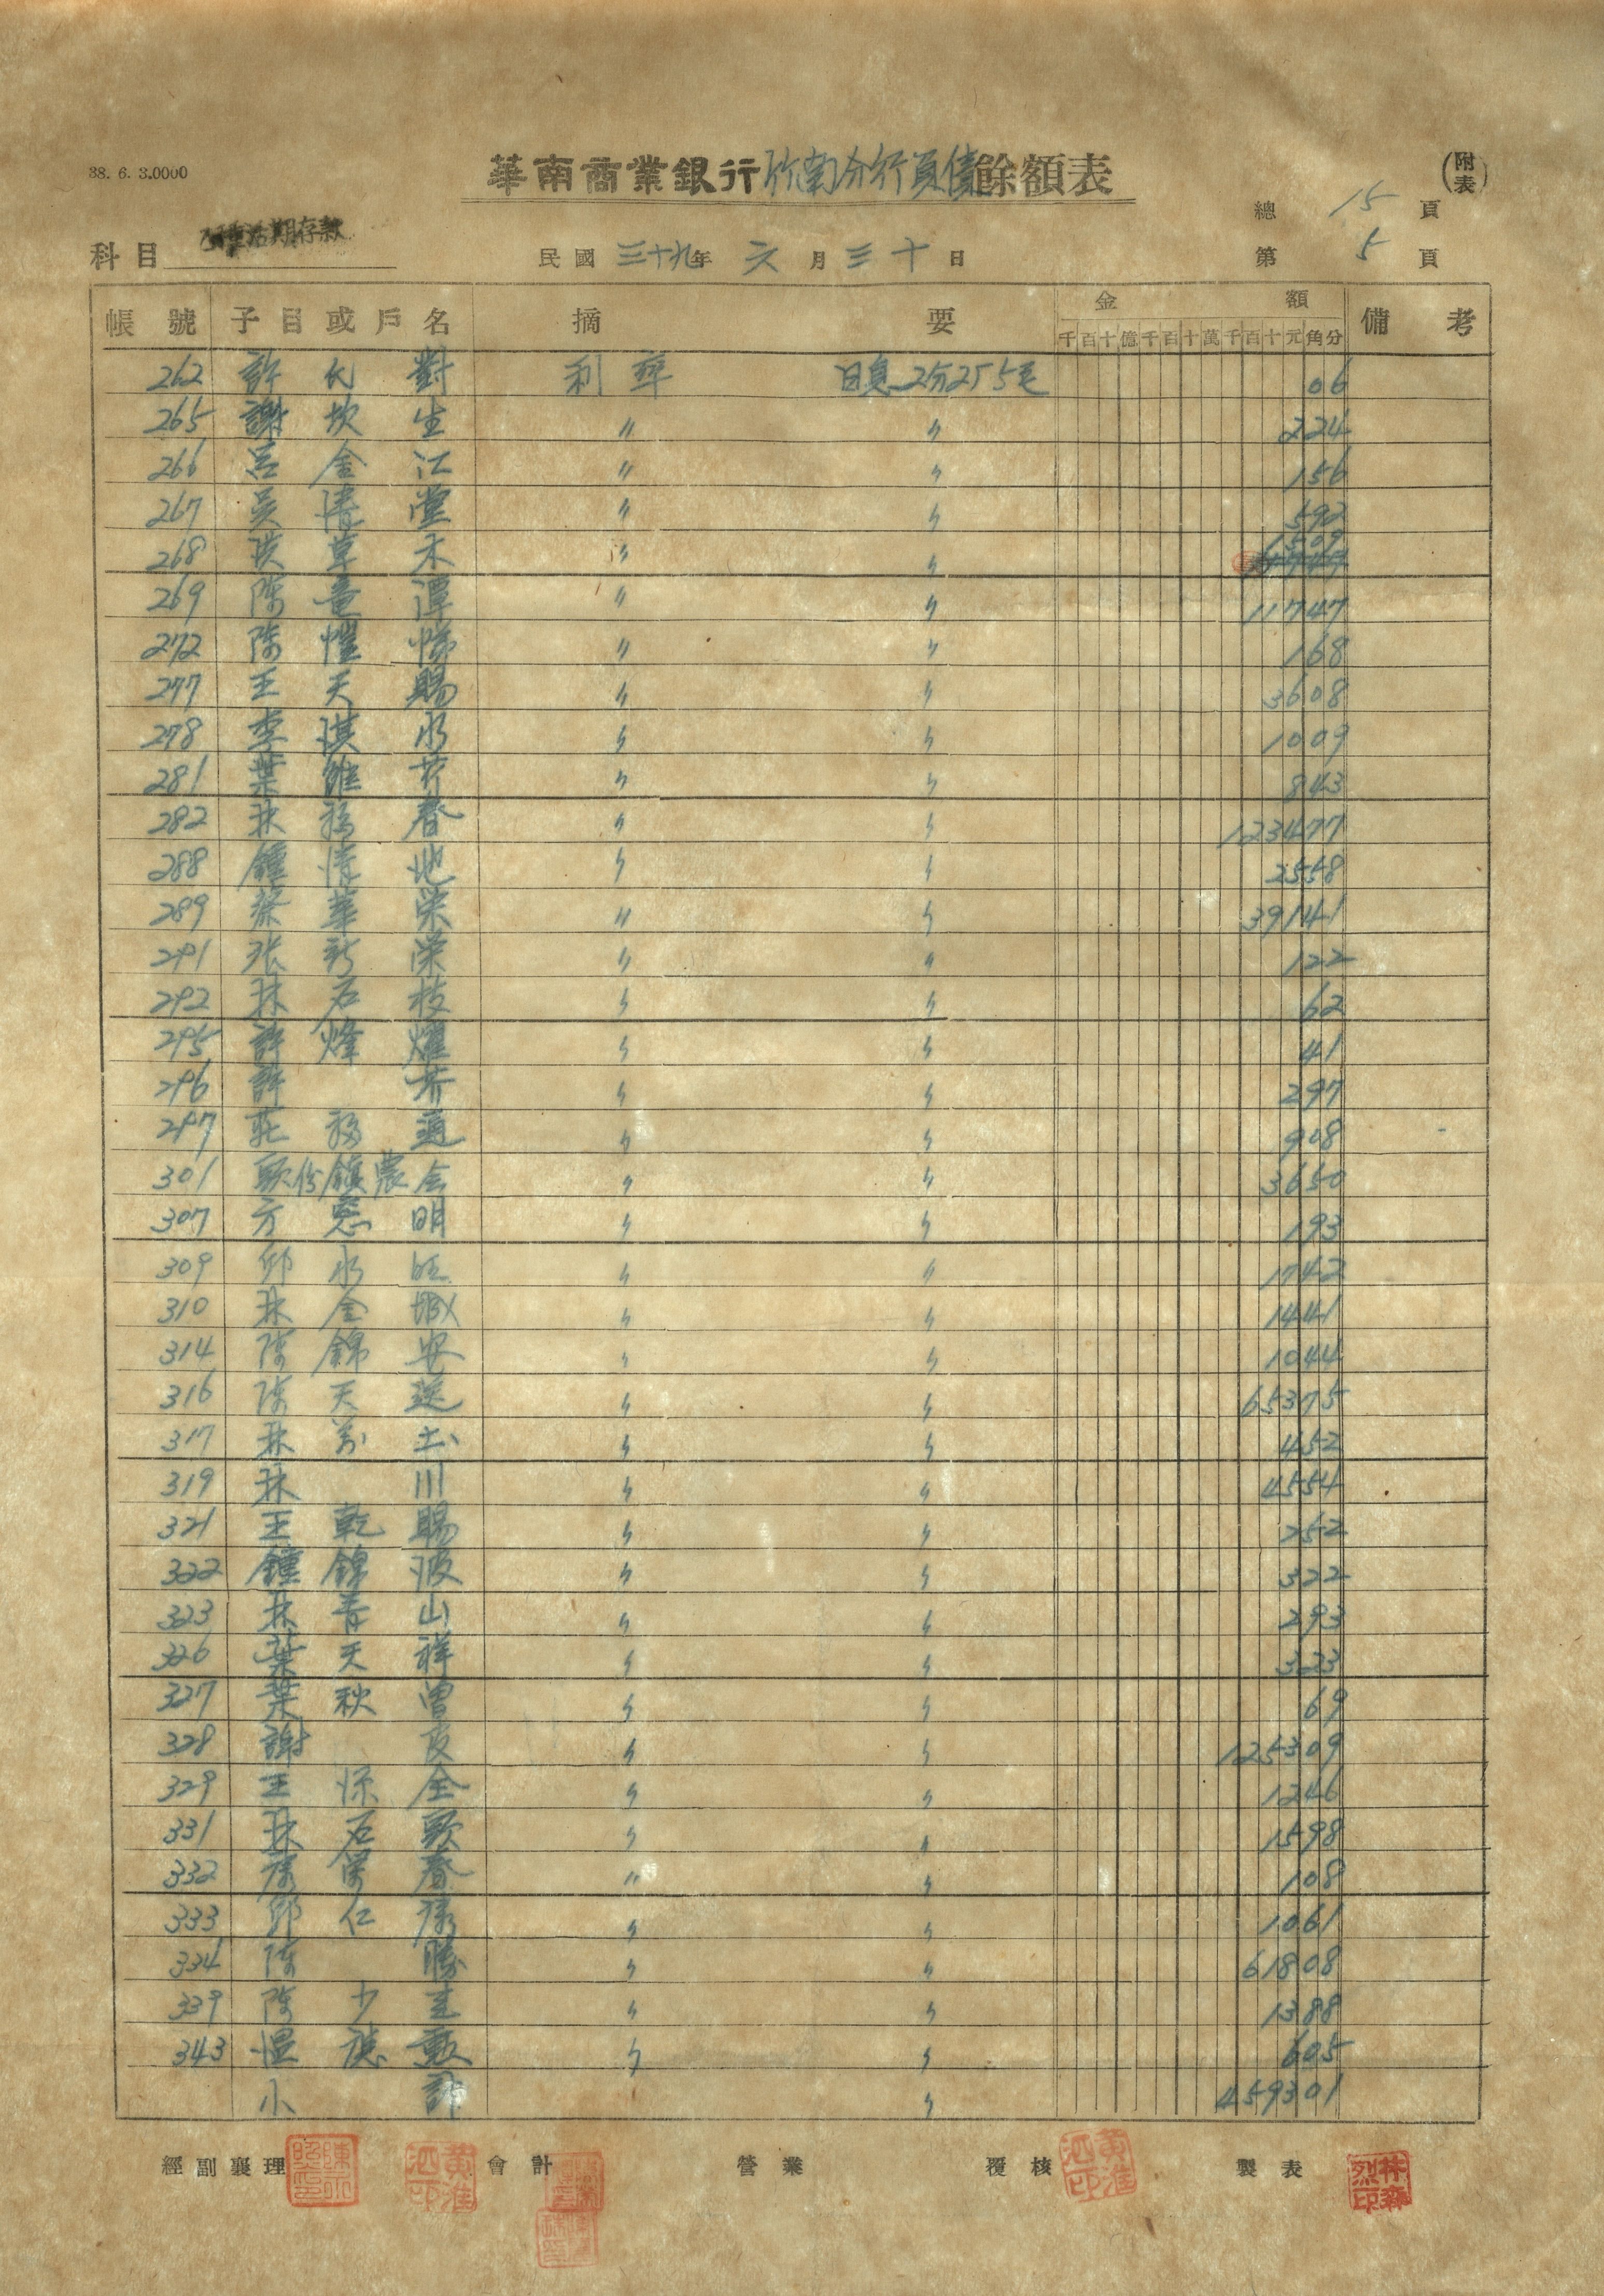 38. 6. 3.0000
華南商業銀行竹南分行負債餘額表
(附表)
總 15 頁
科目 乙種活期存款
民國 三十九年 六 月 三十 日
第 5 頁
帳號 子目或戶名 摘要 金額 備考
千百十億千百十萬千百十元角分
262 許氏對 利率 日息2分2厘5毛 06
265 謝坎生 〃 〃 224
266 呂金江 〃 〃 156
267 吳清堂 〃 〃 592
268 洪草禾 〃 〃 1509
269 陳竜潭 〃 〃 11747
272 陳愷悌 〃 〃 168
277 王天賜 〃 〃 3608
278 李淇水 〃 〃 1009
281 葉維芹 〃 〃 843
282 林務春 〃 〃 123477
288 鍾清地 〃 〃 2558
289 蔡華榮 〃 〃 39141
291 張新榮 〃 〃 122
292 林石枝 〃 〃 62
295 許烽燿 〃 〃 41
296 許芳 〃 〃 297
297 莊務通 〃 〃 908
301 頭份鎮農会 〃 〃 3650
307 方窓明 〃 〃 193
309 邱水旺 〃 〃 1742
310 林金城 〃 〃 1441
314 陳錦安 〃 〃 1044
316 陳天送 〃 〃 65375
317 林芳土 〃 〃 452
319 林川 〃 〃 4554
321 王乾賜 〃 〃 252
322 鍾錦波 〃 〃 322
323 林青山 〃 〃 293
326 葉天祥 〃 〃 323
327 葉秋曽 〃 〃 69
328 謝友 〃 〃 125309
329 王添全 〃 〃 1246
331 林石頭 〃 〃 1598
332 榮春 〃 〃 108
333 邱仁 〃 〃 1061
334 陳勝 〃 〃 61808
339 陳少圭 〃 〃 1388
343 温德勲 〃 〃 605
小計 〃 459301
經副襄理 會計 營業 覆核 製表
黃淮泗印
黃淮泗印
林森烈印